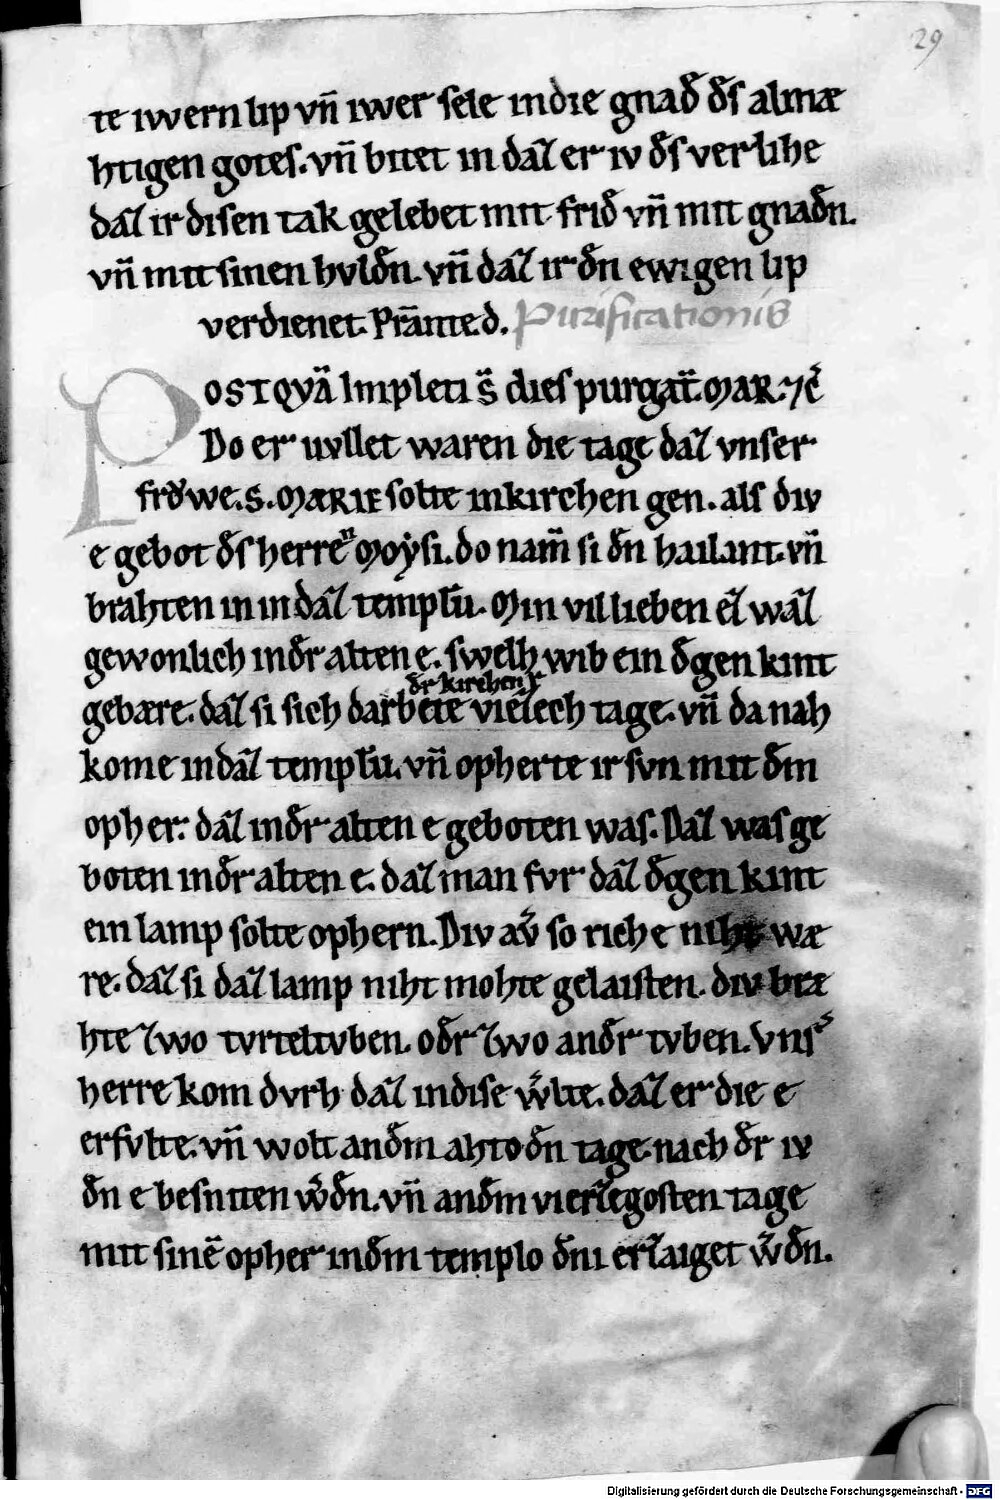 29
te iwern lip vn̄ iwer sele in die gnad̄ d̄s almæ
htigen gotes. vn̄ bitet in daz er iv d̄s verlihe
daz ir disen tak gelebet mit frid̄ vn̄ mit gnad̄n.
vn̄ mit sinen hvld̄n. vn̄ daz ir d̄n ewigen lip
verdienet. Prāute. d. Purificationis
POSTQVĀ Impleti s̄ dies purgat̄. MAR. ⁊c̄
Do er uvllet waren die tage daz vnser
frǒwe. S. MARIE solte inkirchen gen. als div
e gebot d̄s herrē Moẏsi. do nam̄ si d̄n hailant. vn̄
brahten in in daz templū. Min vil lieben ez waz
gewonlich in d̄r alten e. swelh wib ein d̄gen kint
d̄r kirchen
gebære. daz si sich darbete vierzech tage. vn̄ da nah
kome in daz templū. vn̄ opherte ir svn mit d̄m
opher. daz in d̄r alten e geboten was. Daz was ge
boten in d̄r alten e. daz man fvr daz d̄gen kint
ein lamp solte ophern. Div av̄ so riche niht wæ
re. daz si daz lamp niht mohte gelaisten. div bræ
hte zwo tvrteltvben. od̄r zwo and̄r tvben. Vnsˢ
herre kom dvrh daz in dise w̄lte. daz er die e
erfvlte. vn̄ wolt an d̄m ahtod̄n tage nach d̄r iv
d̄n e besniten w̄d̄n. vn̄ an d̄m vierzegosten tage
mit sinē opher in d̄m templo d̄ni erzaiget w̄d̄n.
Digitalisierung gefördert durch die Deutsche Forschungsgemeinschaft - DFG